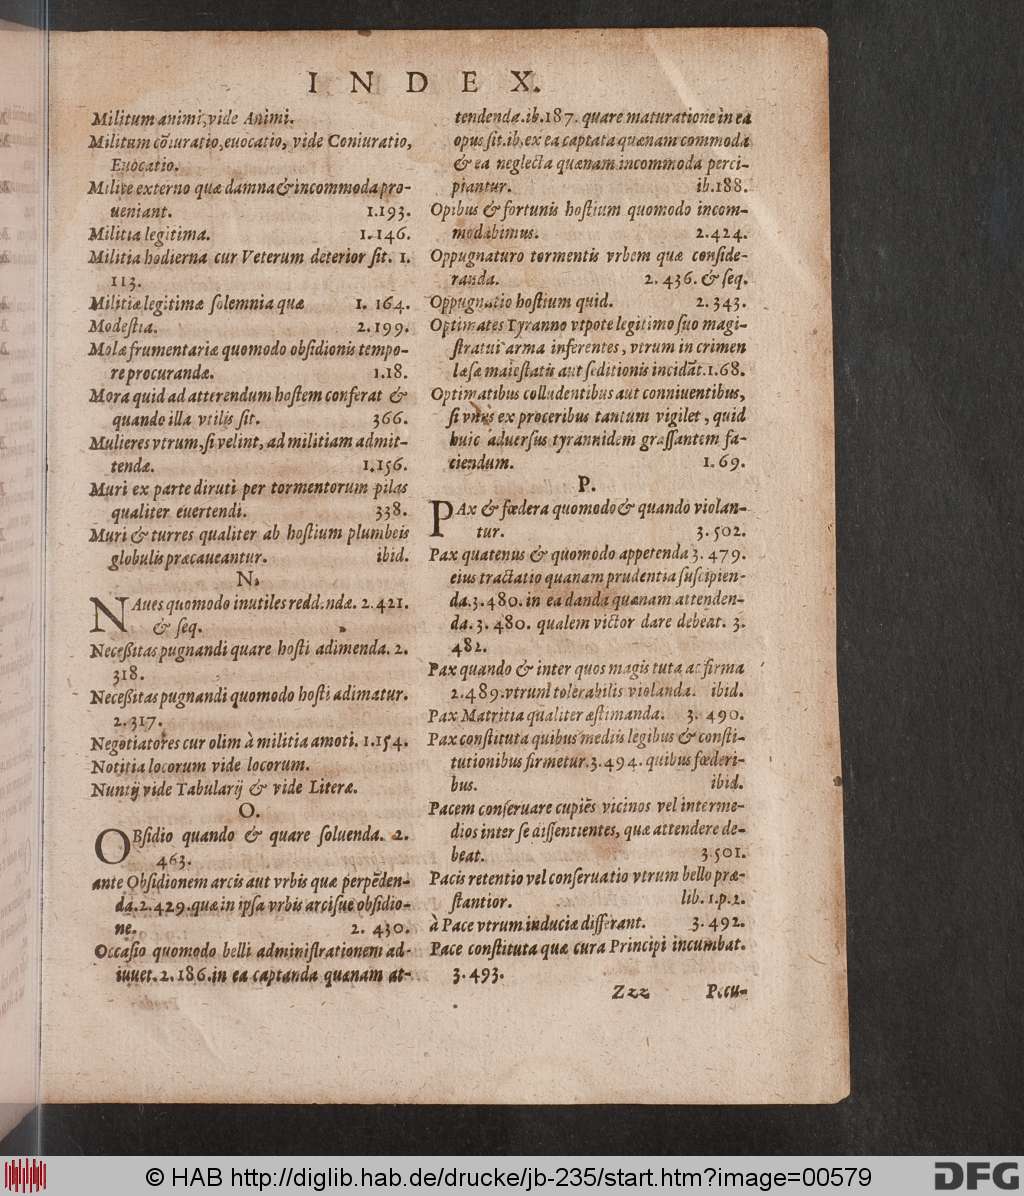 INDEX.
Militum animi, vide Animi.
Militum cõiuratio, euocatio, vide Coniuratio,
Euocatio.
Milite externo quæ damna & incommoda pro-
ueniant. 1.193.
Militia legitima. 1.146.
Militia hodierna cur Veterum deterior sit. 1.
113.
Militiæ legitimæ solemnia quæ 1. 164.
Modestia. 2.199.
Molæ frumentariæ quomodo obsidionis tempo-
re procurandæ. 1.18.
Mora quid ad atterendum hostem conferat &
quando illa vtilis sit. 366.
Mulieres vtrum, si velint, ad militiam admit-
tendæ. 1.156.
Muri ex parte diruti per tormentorum pilas
qualiter euertendi. 338.
Muri & turres qualiter ab hostium plumbeis
globulis præcaueantur. ibid.
N.
NAues quomodo inutiles reddendæ. 2.421.
& seq.
Necessitas pugnandi quare hosti adimenda. 2.
318.
Necessitas pugnandi quomodo hosti adimatur.
2.317.
Negotiatores cur olim à militia amoti. 1.154.
Notitia locorum vide locorum.
Nuntij vide Tabularij & vide Literæ.
O.
OBsidio quando & quare soluenda. 2.
463.
ante Obsidionem arcis aut vrbis quæ perpẽden-
da. 2.429. quæ in ipsa vrbis arcisue obsidio-
ne. 2. 430.
Occasio quomodo belli administrationem ad-
iuuet. 2.186. in ea captanda quænam at-
tendenda. ib. 187. quare maturatione in ea
opus sit. ib. ex ea captata quænam commoda
& ea neglecta quænam incommoda perci-
piantur. ib.188.
Opibus & fortunis hostium quomodo incom-
modabimus. 2.424.
Oppugnaturo tormentis vrbem quæ conside-
randa. 2. 436. & seq.
Oppugnatio hostium quid. 2. 343.
Optimates Tyranno vtpote legitimo suo magi-
stratui arma inferentes, vtrum in crimen
læsæ maiestatis aut seditionis incidãt. 1.68.
Optimatibus colludentibus aut conniuentibus,
si vnus ex proceribus tantum vigilet, quid
huic aduersus tyrannidem grassantem fa-
ciendum. 1.69.
P.
PAx & fœdera quomodo & quando violan-
tur. 3.502.
Pax quatenus & quomodo appetenda 3. 479.
eius tractatio quanam prudentia suscipien-
da. 3.480. in ea danda quænam attenden-
da. 3. 480. qualem victor dare debeat. 3.
482.
Pax quando & inter quos magis tuta ac firma
2.489. vtrum tolerabilis violanda. ibid.
Pax Matritia qualiter æstimanda. 3. 490.
Pax constituta quibus mediis legibus & consti-
tutionibus firmetur. 3.494. quibus fœderi-
bus. ibid.
Pacem conseruare cupiẽs vicinos vel interme-
dios inter se dissentientes, quæ attendere de-
beat. 3.501.
Pacis retentio vel conseruatio vtrum bello præ-
stantior. lib. 1.p.2.
à Pace vtrum induciæ differant. 3.492.
Pace constituta quæ cura Principi incumbat.
3.493.
Zzz Pecu-
© HAB http://diglib.hab.de/drucke/jb-235/start.htm?image=00579
DFG